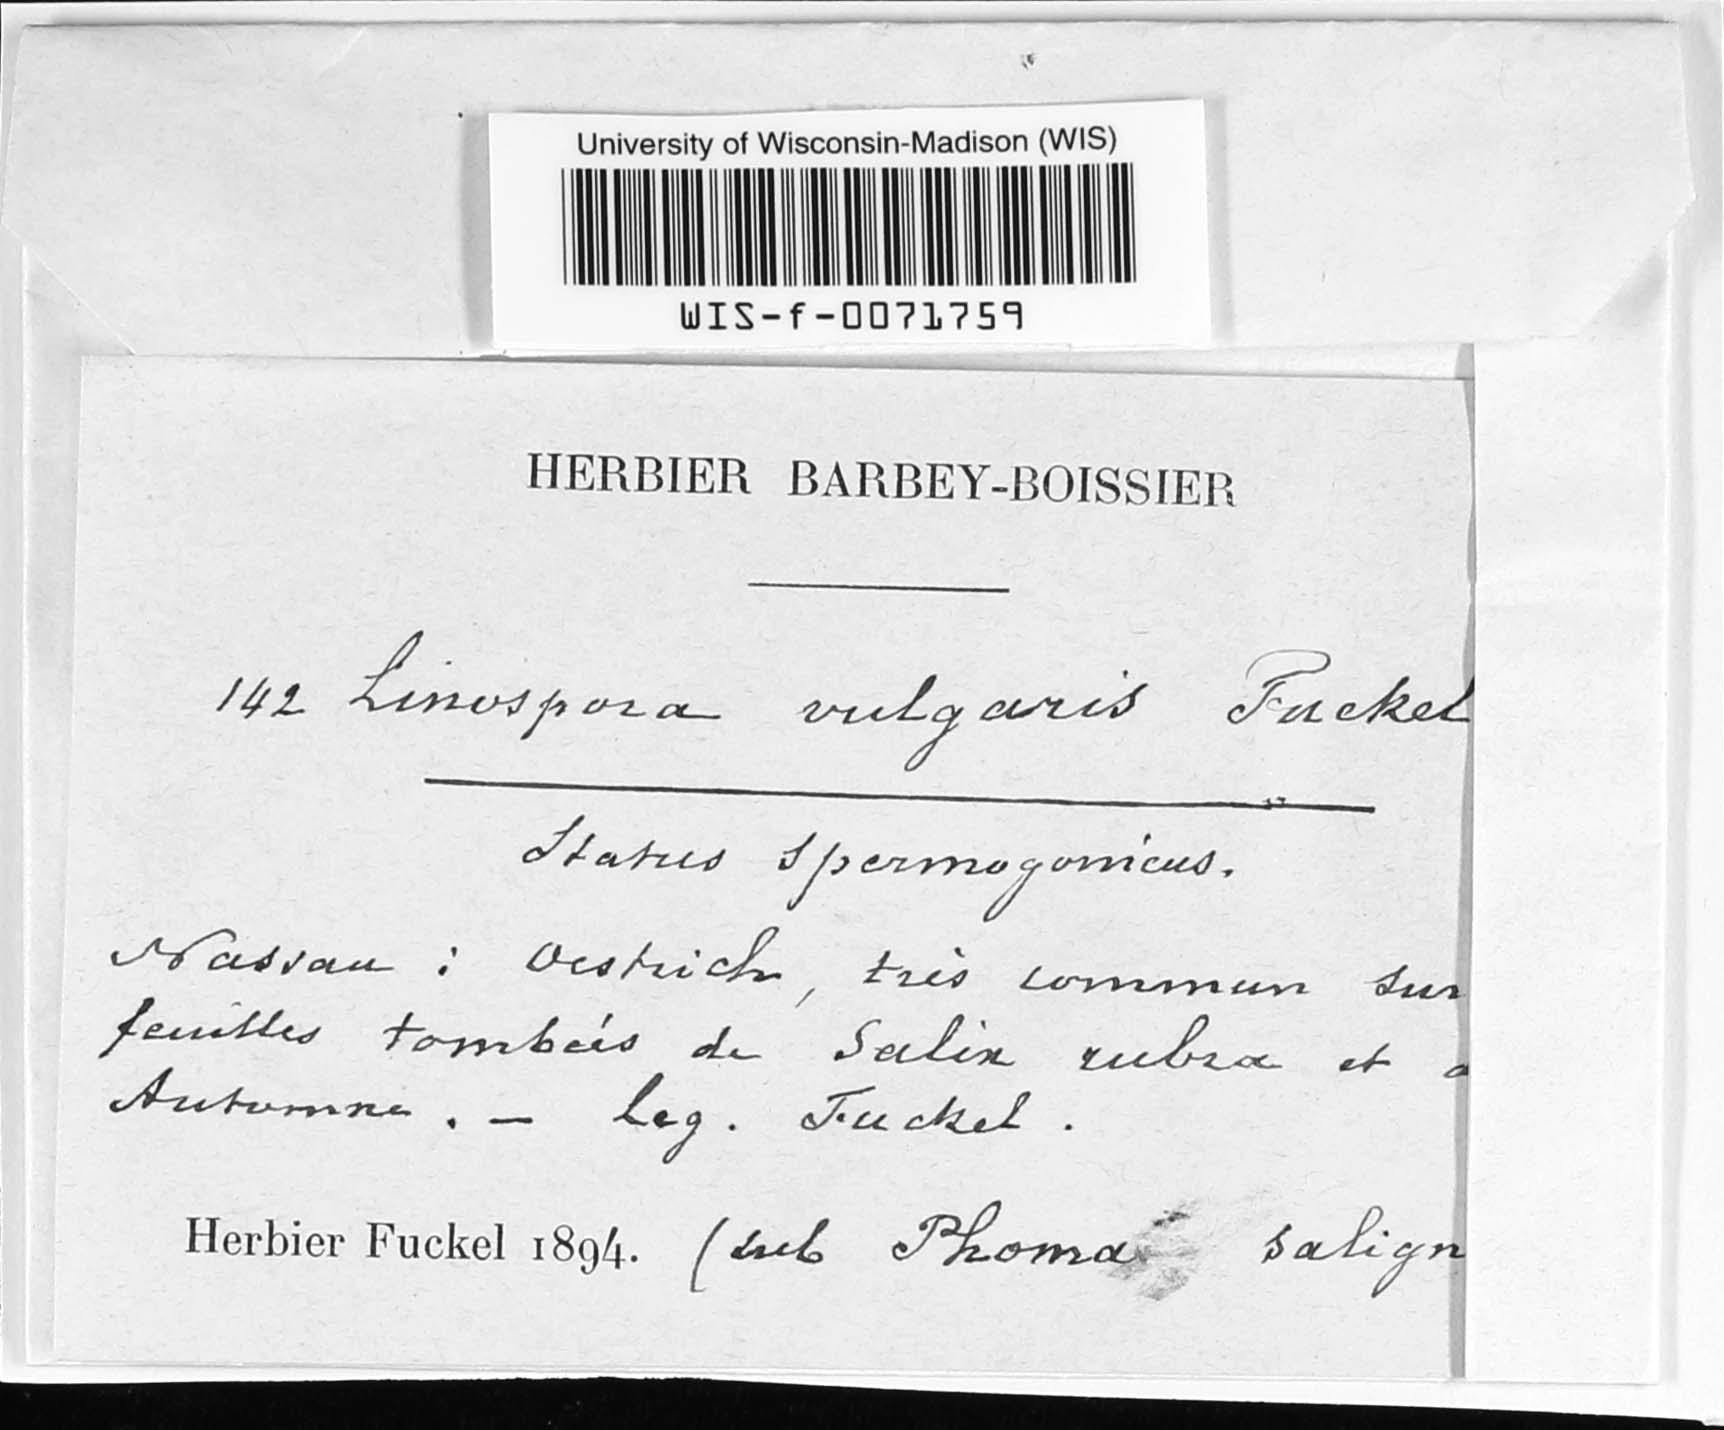 University of Wisconsin-Madison (WIS)
WIS-f-0071759
HERBIER BARBEY-BOISSIER
142 Linospora vulgaris Fuckel
Status spermogonicus.
Nassau : Oestrich, très commun sur
feuilles tombées de Salix rubra et a
Automne. — Leg. Fuckel.
Herbier Fuckel 1894. (sub Phoma salign